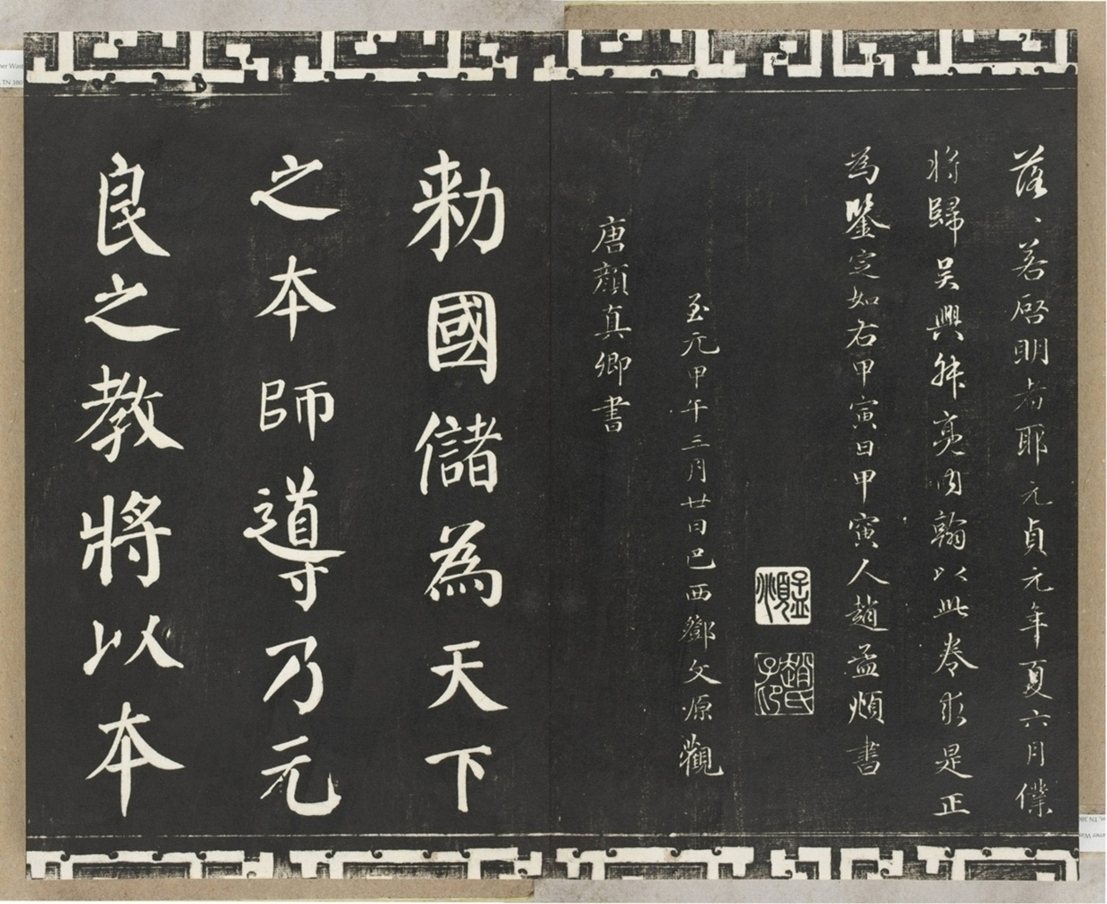 落、若啓明者耶 元貞元年夏六月僕
将歸吴興亮内翰以此卷求是正
為鑒定如右甲寅日甲寅人趙孟頫書
孟頫
趙氏子
至元甲午三月廿日巴西鄧文原觀
唐顏真卿書
勅國儲為天下
之本師導乃元
良之教將以本